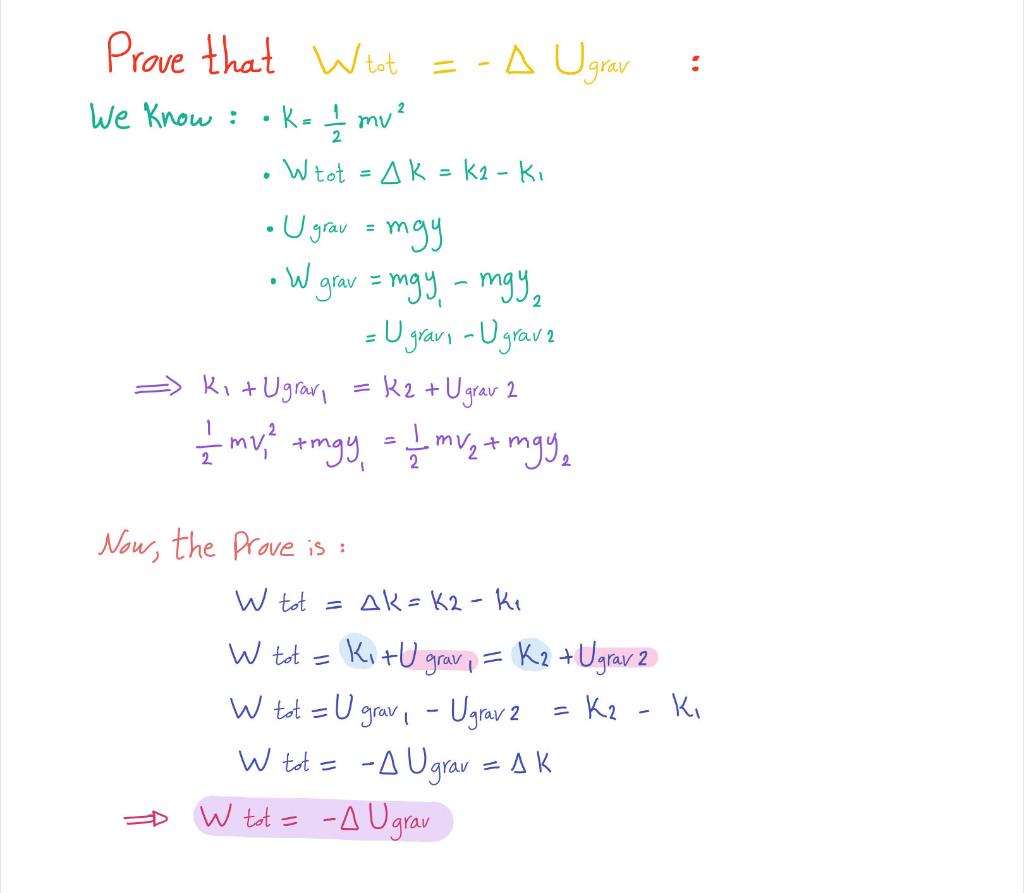 Prove that W tot = - Δ U grav :
We Know : • K = 1/2 mv²
• W tot = Δ K = K2 - K₁
• U grav = mgy
• W grav = mgy₁ - mgy₂
= U grav₁ - U grav 2
⟹ K₁ + U grav₁ = K2 + U grav 2
1/2 mv₁² + mgy₁ = 1/2 mv₂ + mgy₂
Now, the Prove is :
W tot = ΔK = K2 - K₁
W tot = K₁ + U grav₁ = K₂ + U grav 2
W tot = U grav₁ - U grav 2 = K₂ - K₁
W tot = -Δ U grav = Δ K
⟹ W tot = -Δ U grav